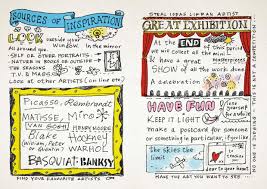 SOURCES OF INSPIRATION
LOOK outside your window in the mirror
All around you
- SELF OR OTHER PORTRAITS
- NATURE IN BOOKS OR OUTSIDE
- THE SEASONS
T.V. & MAGS
LOOK at other ARTISTS (on line etc)
Picasso, Rembrandt
MATISSE, Miro
VAN GOGH HENRY MOORE
Blake HOCKNEY
(William, Peter) WARHOL
BASQUIAT. BANKSY
FIND YOUR FAVOURITE ARTISTS
STEAL IDEAS LIKE AN ARTIST
GREAT EXHIBITION
At the END of this period
we will collect all the
Masterpieces
and have a GREAT
SHOW of all the work done
A celebration
HAVE FUN
KEEP IT LIGHT
make a postcard for someone
or something in particular, if you like
the skies the limit
tickets
dear to your heart
MAKE THE ART YOU WANT TO SEE